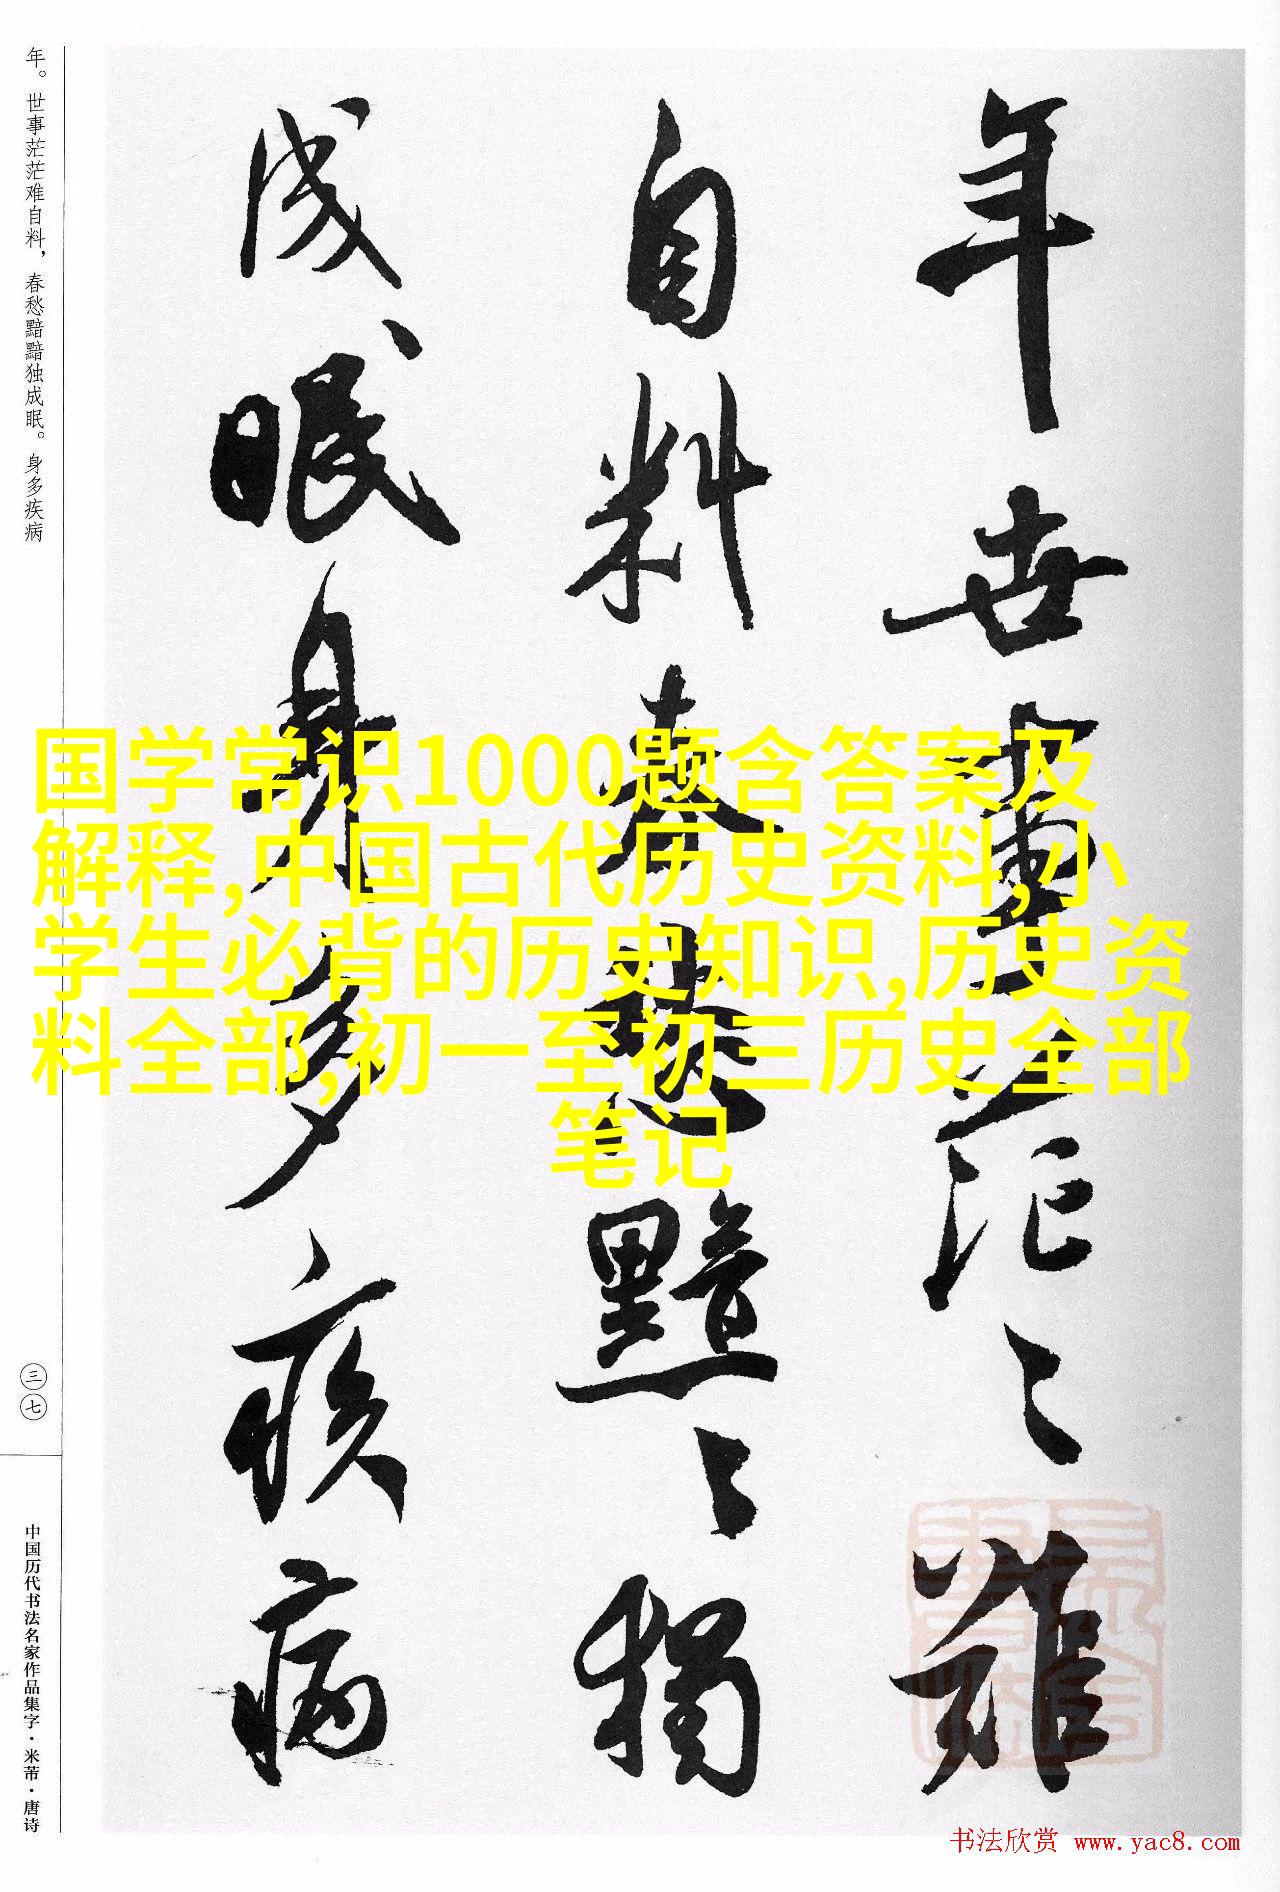 年。世事茫茫难自料，春愁黯黯独成眠。身多疾病
三七
中国历代书法名家作品集字·米芾·唐诗
年世事茫〻难
自料春愁黯〻獨
成眠身多疾病
国学常识1000题含答案及
解释,中国古代历史资料,小
学生必背的历史知识,历史资
料全部,初一至初三历史全部
笔记
书法欣赏 www.yac8.com